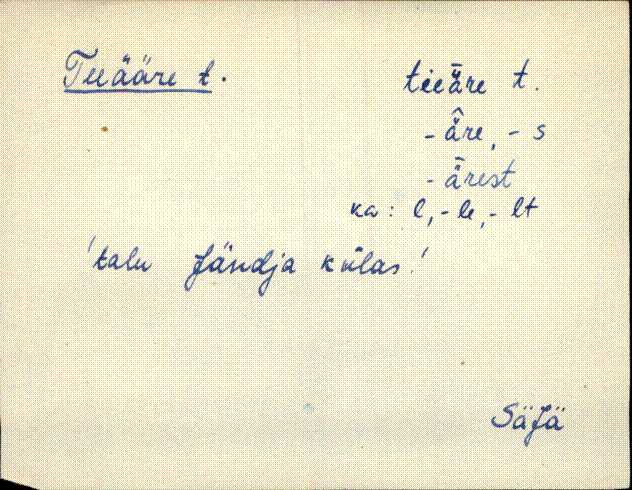 Teeääre t. tieǟre t.
-ä̂re, -s
-ǟrest
ka: l, -le, -lt
'talu Jändja külas.'
SäJä